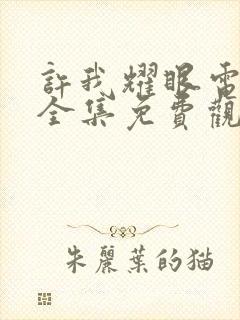 許我耀眼電
全集免費觀
朱麗葉的猫